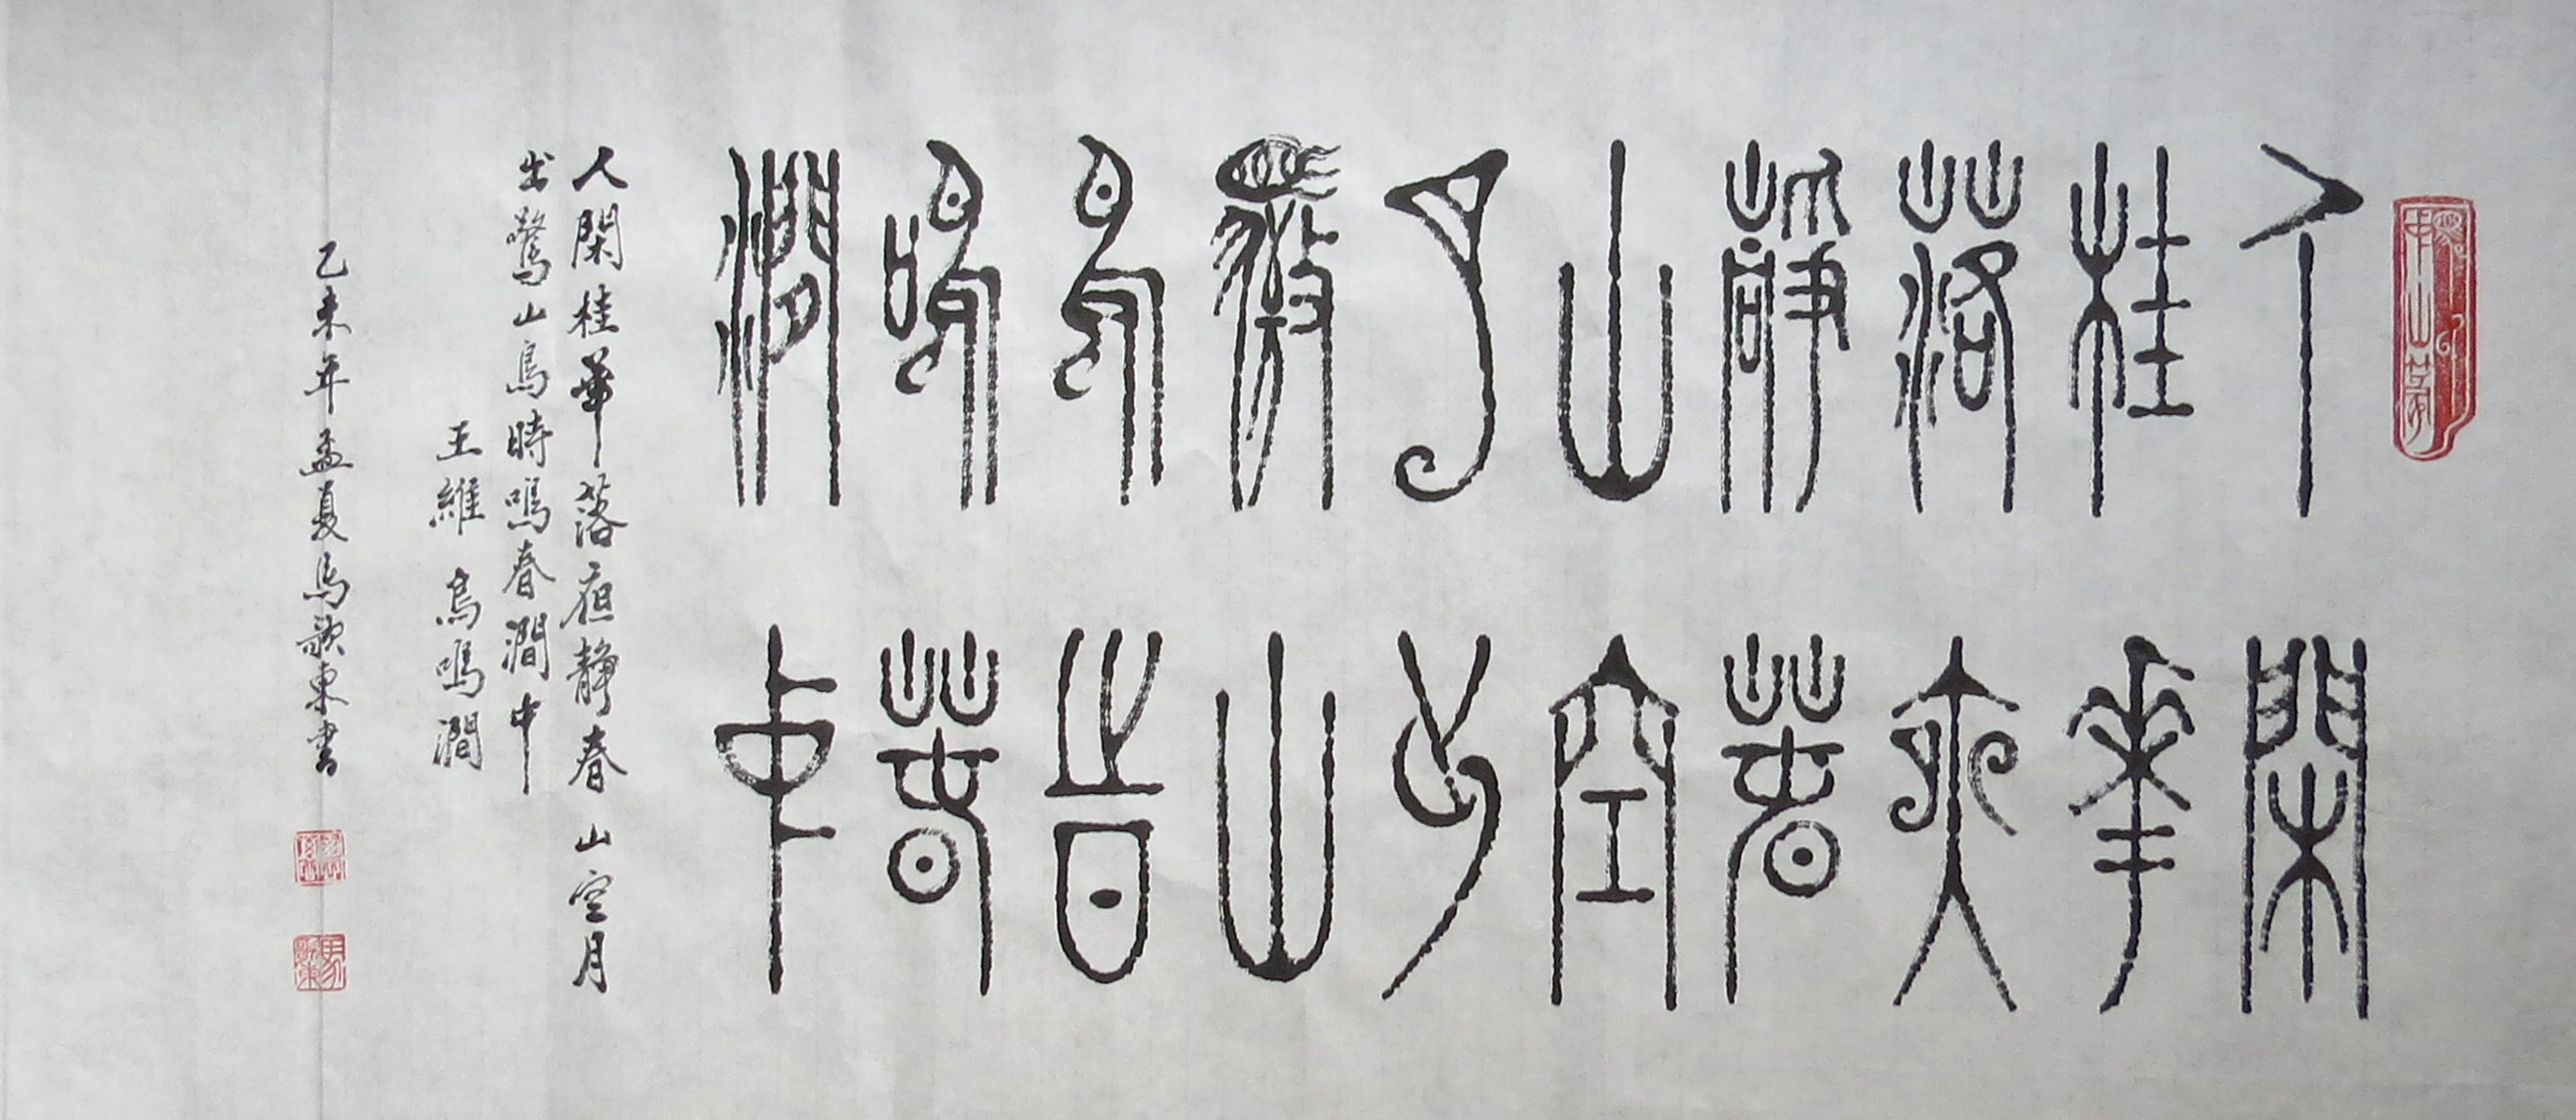 人閑
桂華
落夜
靜春
山空
月出
驚山
鳥時
鳴春
澗中
人閑桂華落亱靜春山空月
出驚山鳥時鳴春澗中
王維 鳥鳴澗
乙未年孟夏馬歌東書